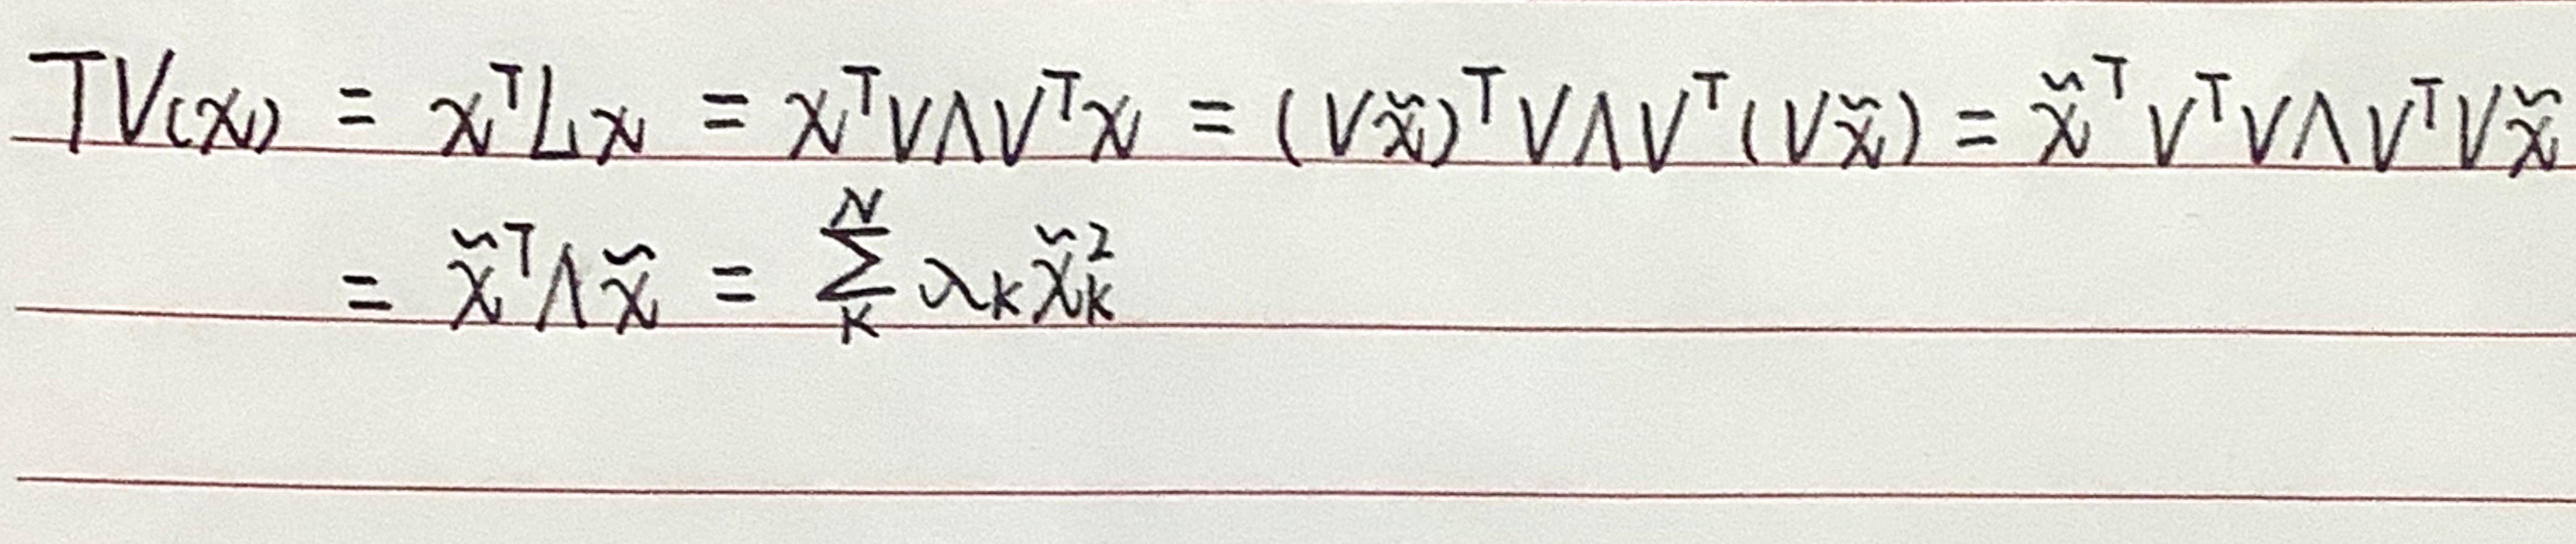 TV(x) = xᵀLx = xᵀVΛVᵀx = (Vx̃)ᵀVΛVᵀ(Vx̃) = x̃ᵀVᵀVΛVᵀVx̃
= x̃ᵀΛx̃ = ∑_K^N λ_K x̃_K²